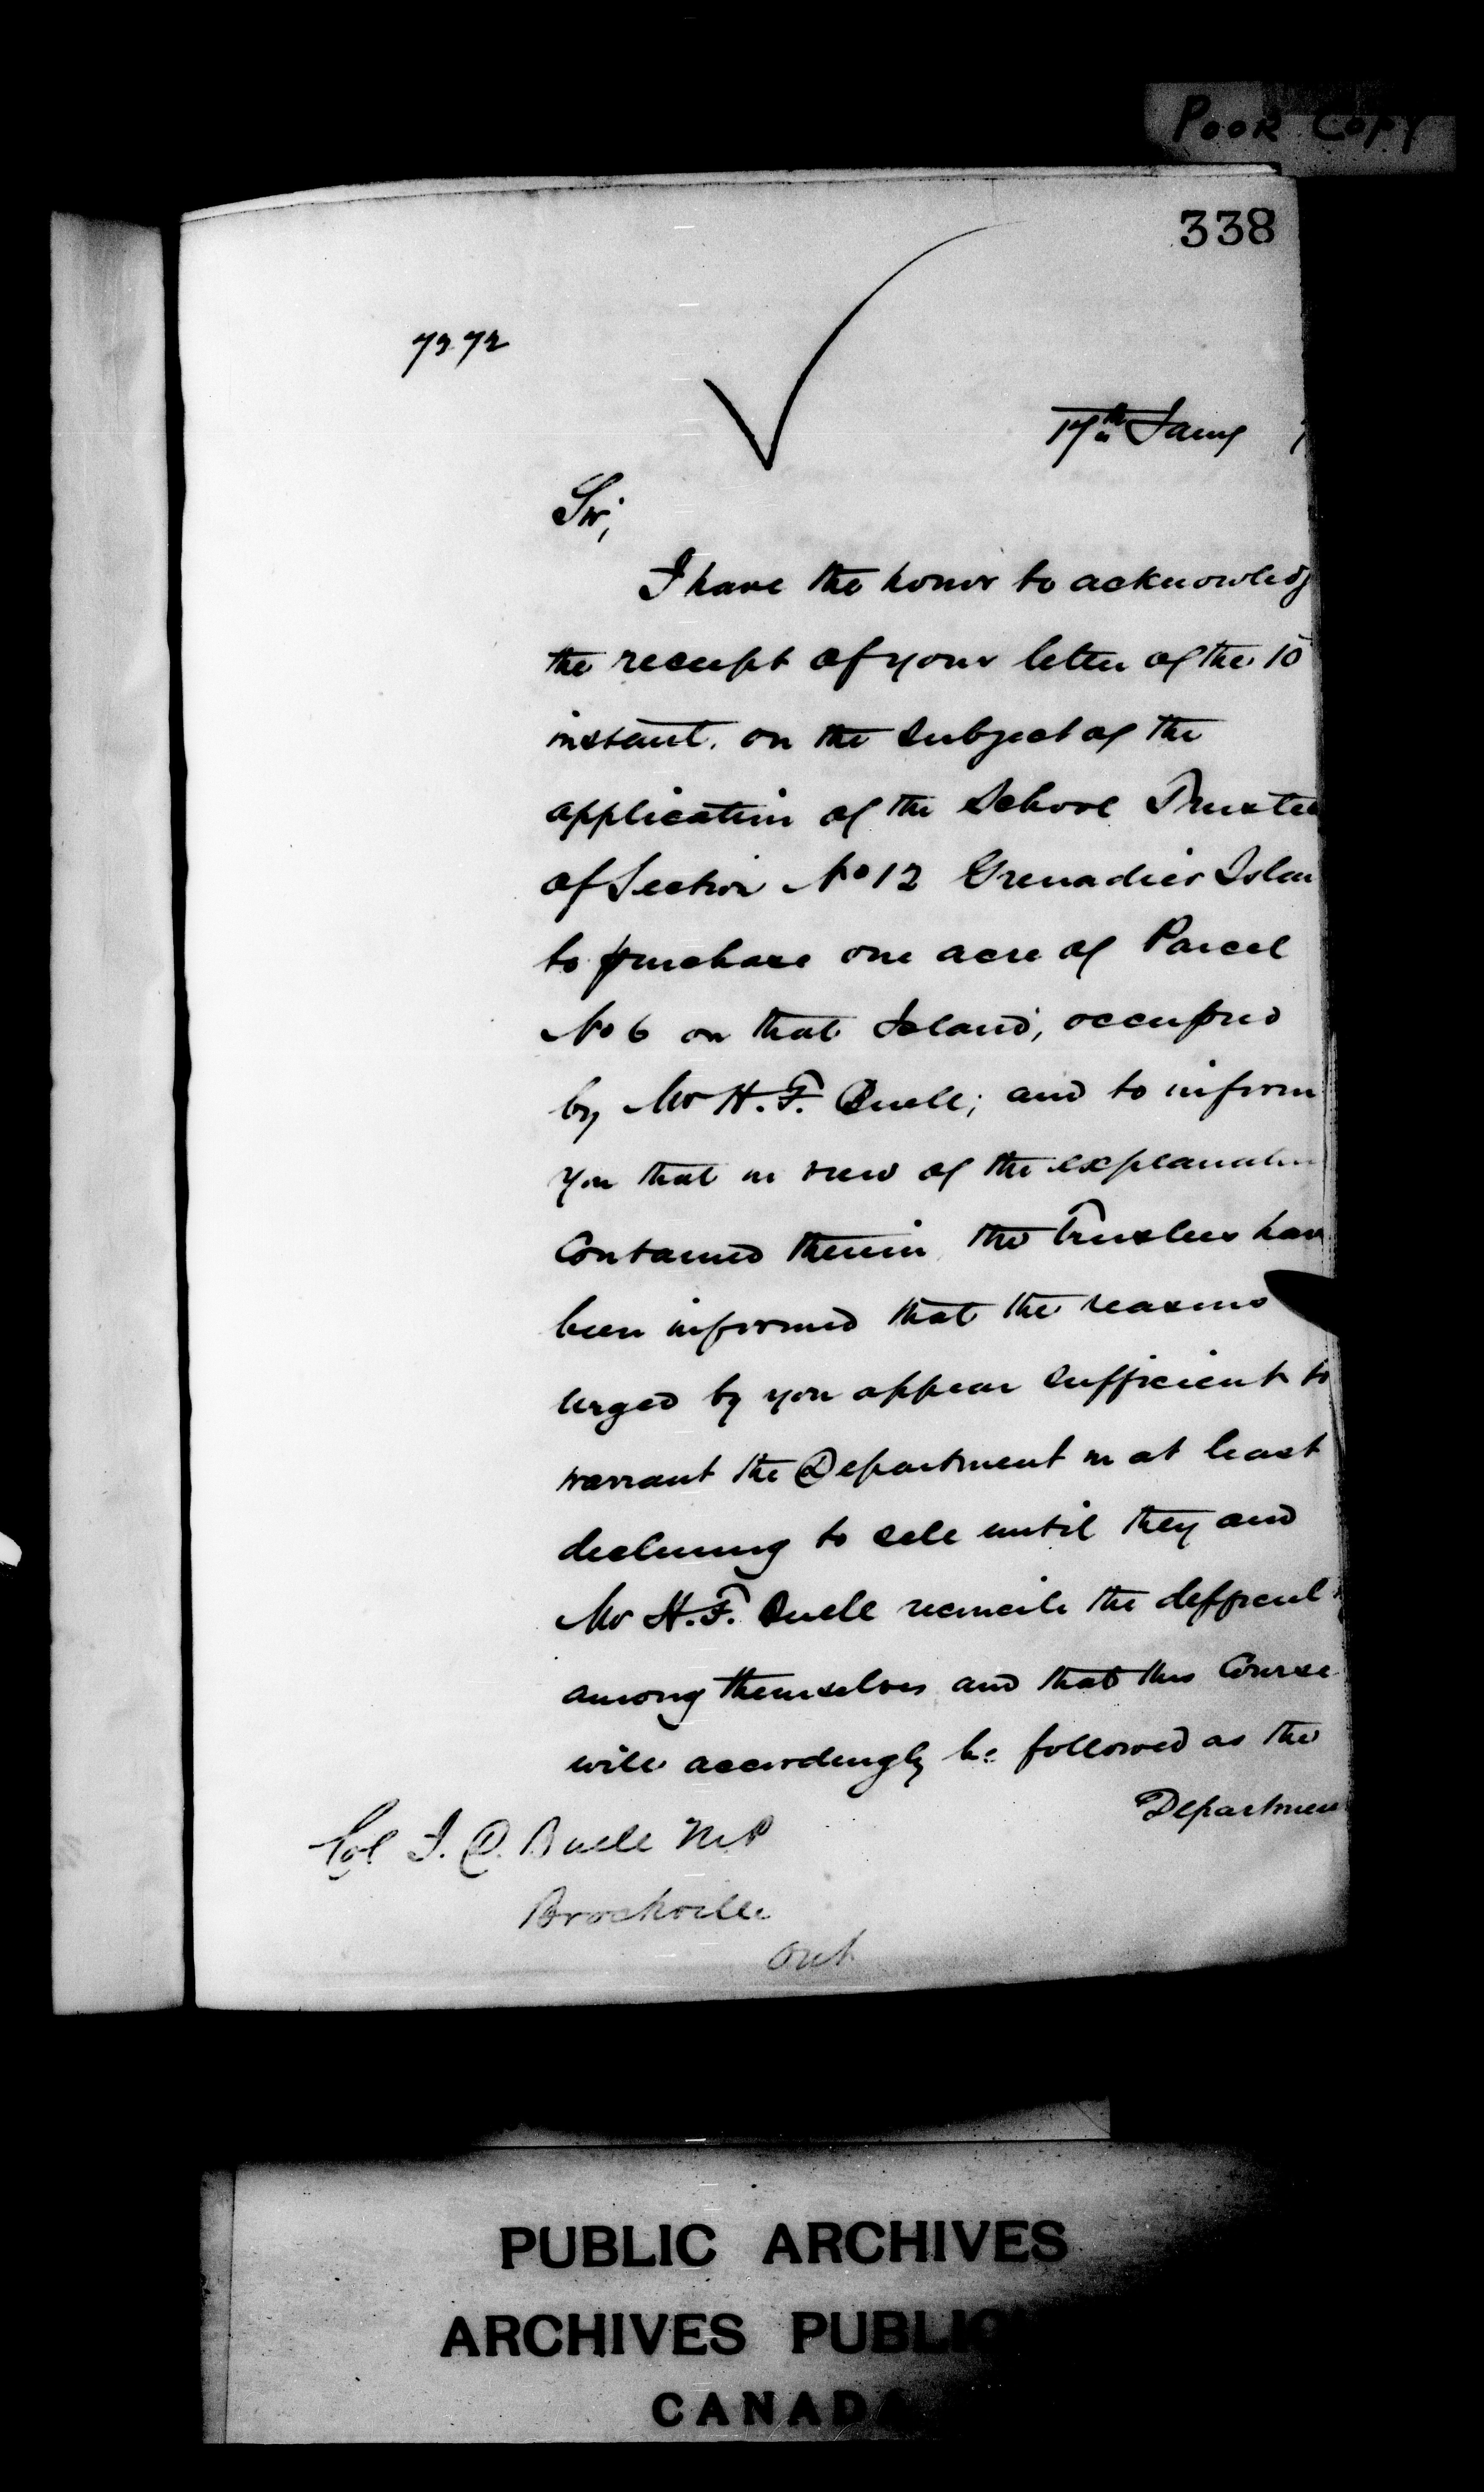 POOR COPY
338
7272
17th Jany 7
Sir,
I have the honor to acknowledg
the receipt of your letter of the 10
instant. on the subject of the
application of the School Trustee
of Section No 12 Grenadier Islan
to purchase one acre of Parcel
No 6 on that Island, occupied
by Mr H. F. Buell; and to inform
you that in view of the explanation
contained therein the Trustees hav
been informed that the reasons
urged by you appear sufficient to
warrant the Department in at least
declining to sell until they and
Mr H. F. Buell reconcile the difficul
among themselves and that this Course
will accordingly be followed as the
Departmen
Col J. D. Buell M.P
Brockville
Ont
PUBLIC ARCHIVES
ARCHIVES PUBLIQ
CANADA